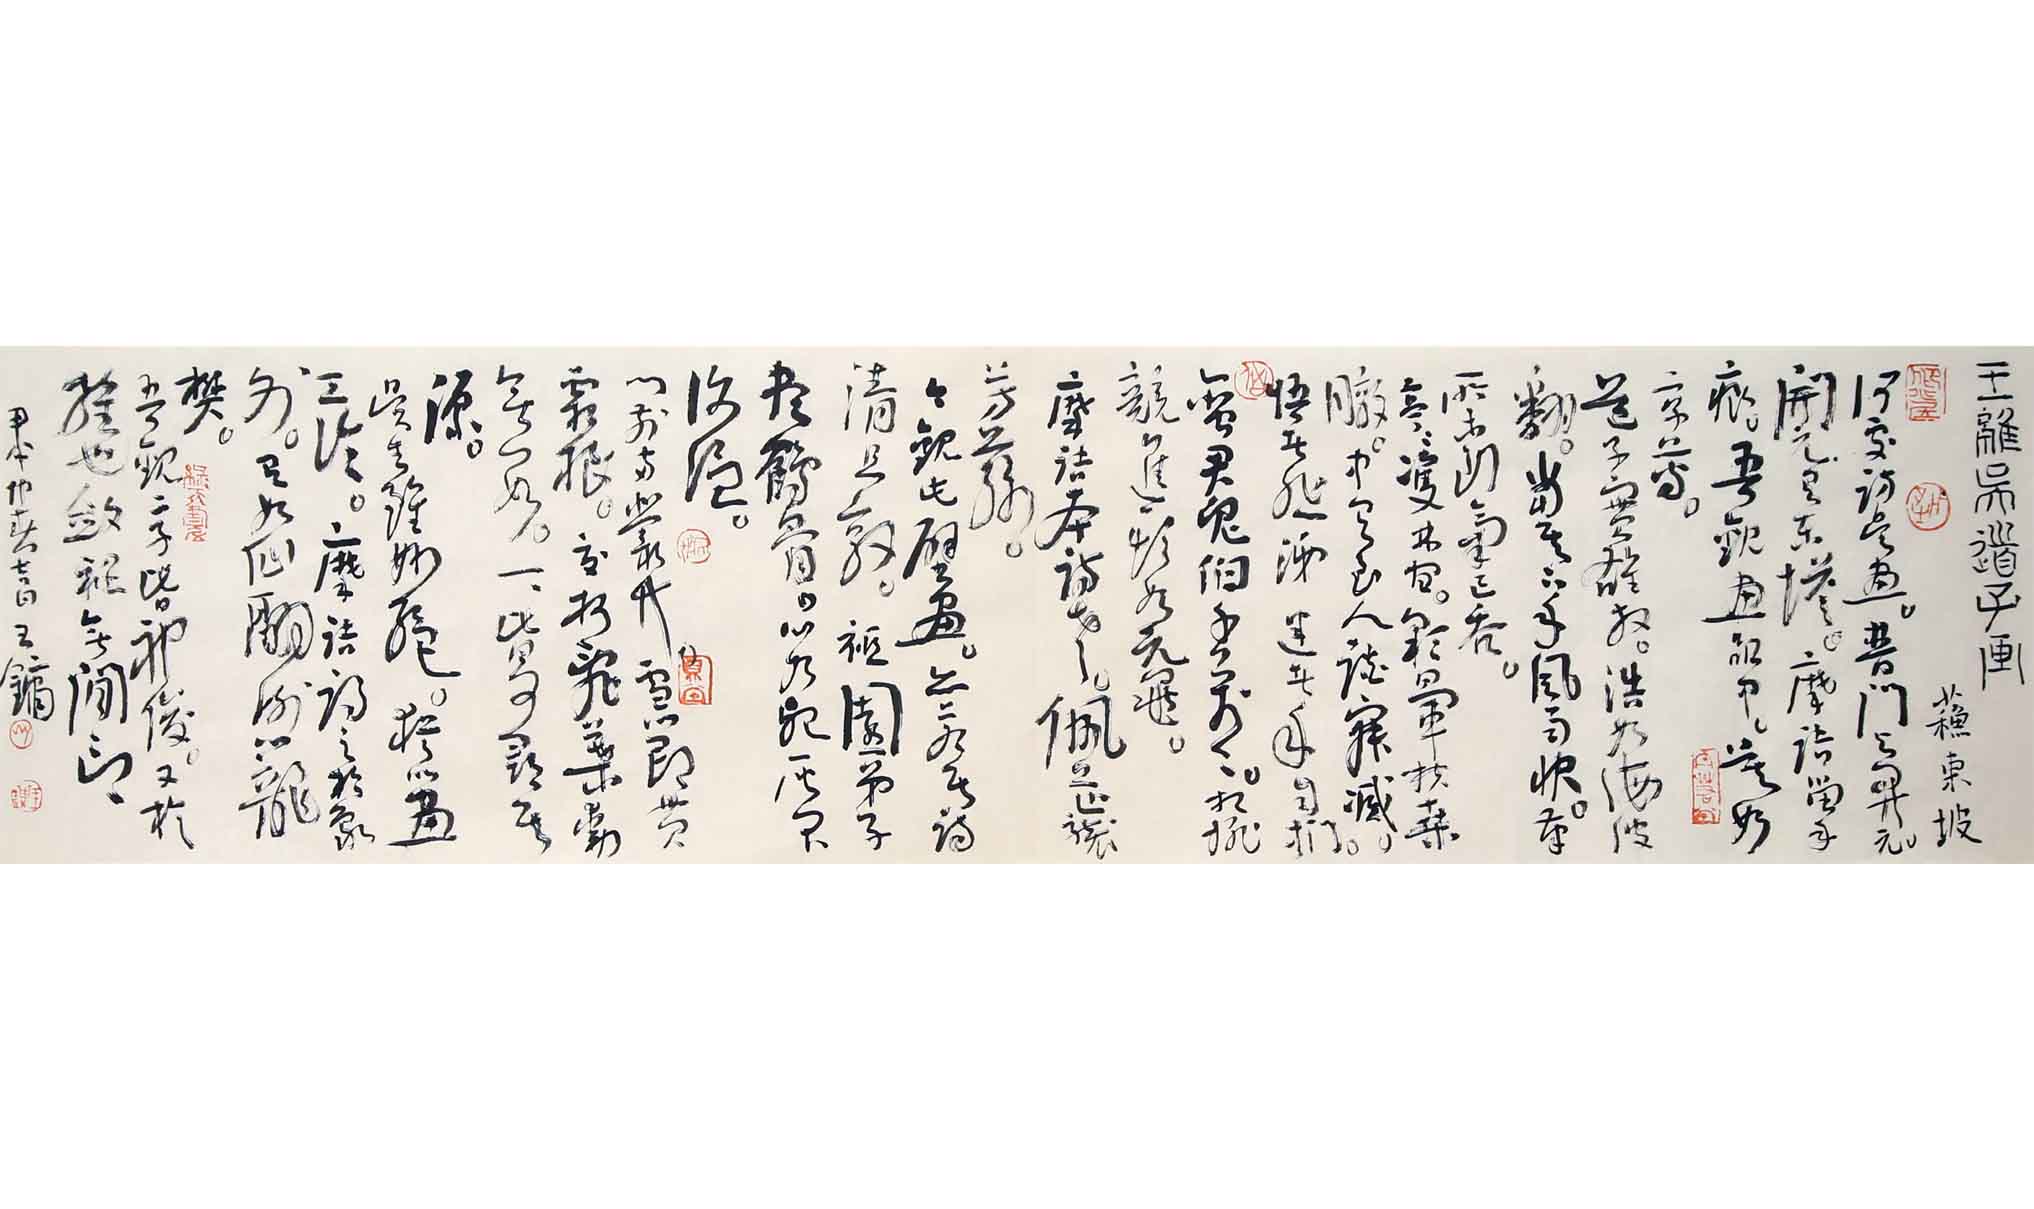 王維吳道子画
蘇東坡
何處訪吳畫。普門與開元。
開元有東塔。摩詰留手
痕。吾觀畫品中。莫如
二子尊。
道子實雄放。浩如海波
翻。當其下手風雨快。筆
所未到氣已吞。
亭亭雙林間。彩暈扶桑
暾。中有至人談寂滅。
悟者悲涕迷者手自捫。
蠻君鬼伯千萬萬。相排
競進頭如黿。
摩詰本詩老。佩芷襲
芳蓀。
今觀此壁畫。亦若其詩
清且敦。祇園弟子
盡鶴骨。心如死灰不
復溫。
門前兩叢竹雪節貫
霜根。交柯亂葉動
無數。一一皆可尋其
源。
吳生雖妙絕。猶以畫
工論。摩詰得之於象
外。有如仙翮謝籠
樊。
吾觀二子皆神俊。又於
維也斂衽無間言
王鏞